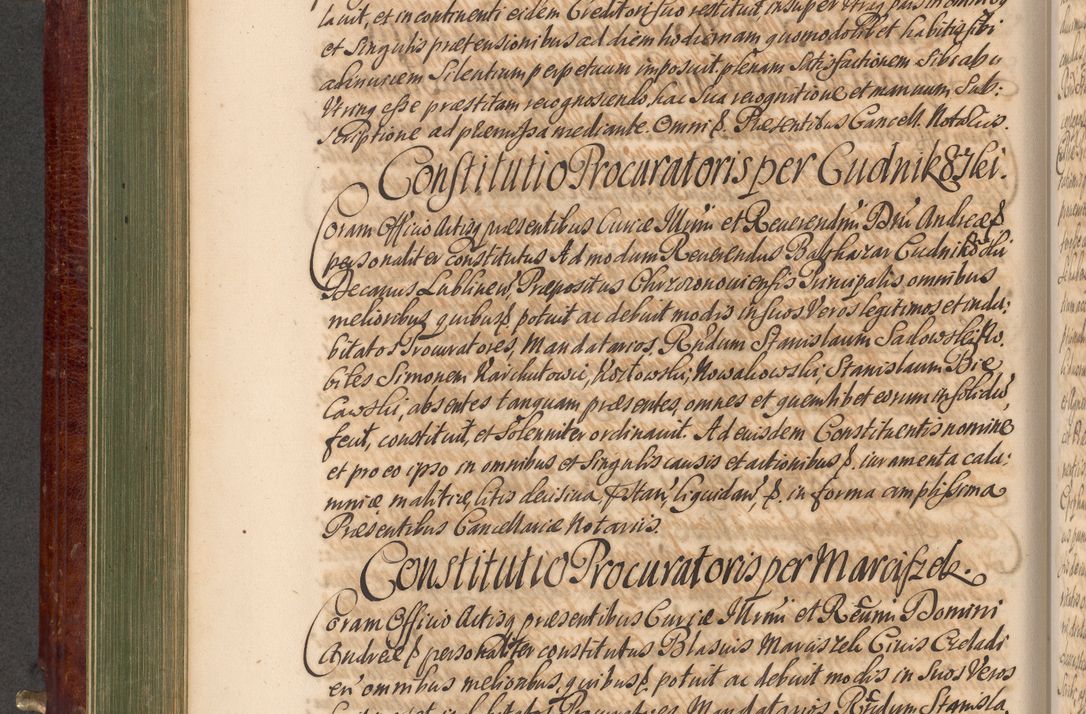 lavit, et in continenti eidem Creditori suo restituit, insuper Utraq pars in omnibq
et Singulis prætensionibus ad diem hodiernam quomodolibet habitis sibi
adinuicem Silentium perpetuum imposuit. plenam Satisfactionem Sibi ab u
trinq esse præstitam recognoscendo, hac Sua recognitione et manuum Sub:
scriptione ad præmissa mediante. Omni &. Præsentibus Cancell. Notariis.
Constitutio Procuratoris per Cudnikowski.
Coram Officio Actisq præsentibus Curiæ Illmi et Reuerendmi Dni Andreæ &
personaliter constitutus Admodum Reuerendus Balthazar Cudnikowski
Decanus Lublinen Præpositus Chrzonouiensis Principalis omnibus
melioribus, quibus & potuit ac debuit modis in suos Veros legitimos et indu:
bitatos Procuratores, Mandatarios, Rndum Stanislaum Sadowski No.
biles Simonem Karchutowic, Kozłowski, Nowakowski, Stanislaum Bie
Cawski, absentes tanquam præsentes, omnes et quemlibet eorum in solidū
fecit, constituit, et Solenniter ordinauit. Ad eiusdem Constituentis nomine
et pro eo ipso in omnibus et Singulis causis et actionibus &, iuramenta calu:
mniæ malitiæ, litis decisiua, &, in forma amplissima
Præsentibus Cancellariæ Notariis.
Constitutio Procuratoris per Marciszek.
Coram Officio Actisq præsentibus Curiæ Illmi et Reūmi Domini
Andreæ & personaliter constitutus Blasius Marciszek Ciuis Czeladi
en omnibus melioribus, quibus & potuit ac debuit modis in Suos Veros
Procuratores Mandatarios Rndum Stanisla